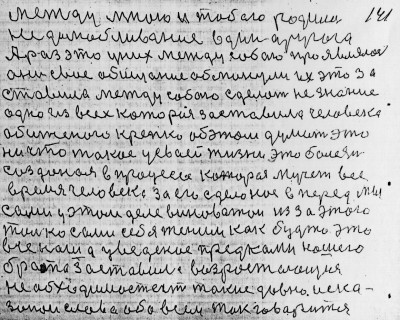 между мною и тобою родился 141
не долюбливание один другого
А раз это у них между собою проявлялось
они свое обещание обманули их это за
ставила между собою сделат не знание
одно из всех которая заставила человека
обиженого крепко об этом думат это
ни что такое у твоей жизни это болезн
созданая в процесе которая мучет все
время человека за его сделоное в перед мы
сами у этом деле виноватои из за этого
только сами себя теним как будто это
все каша уведение предками нашего
брата заставила возростающия
необходимостей такие давно иска-
заные слова обо всем так говарится